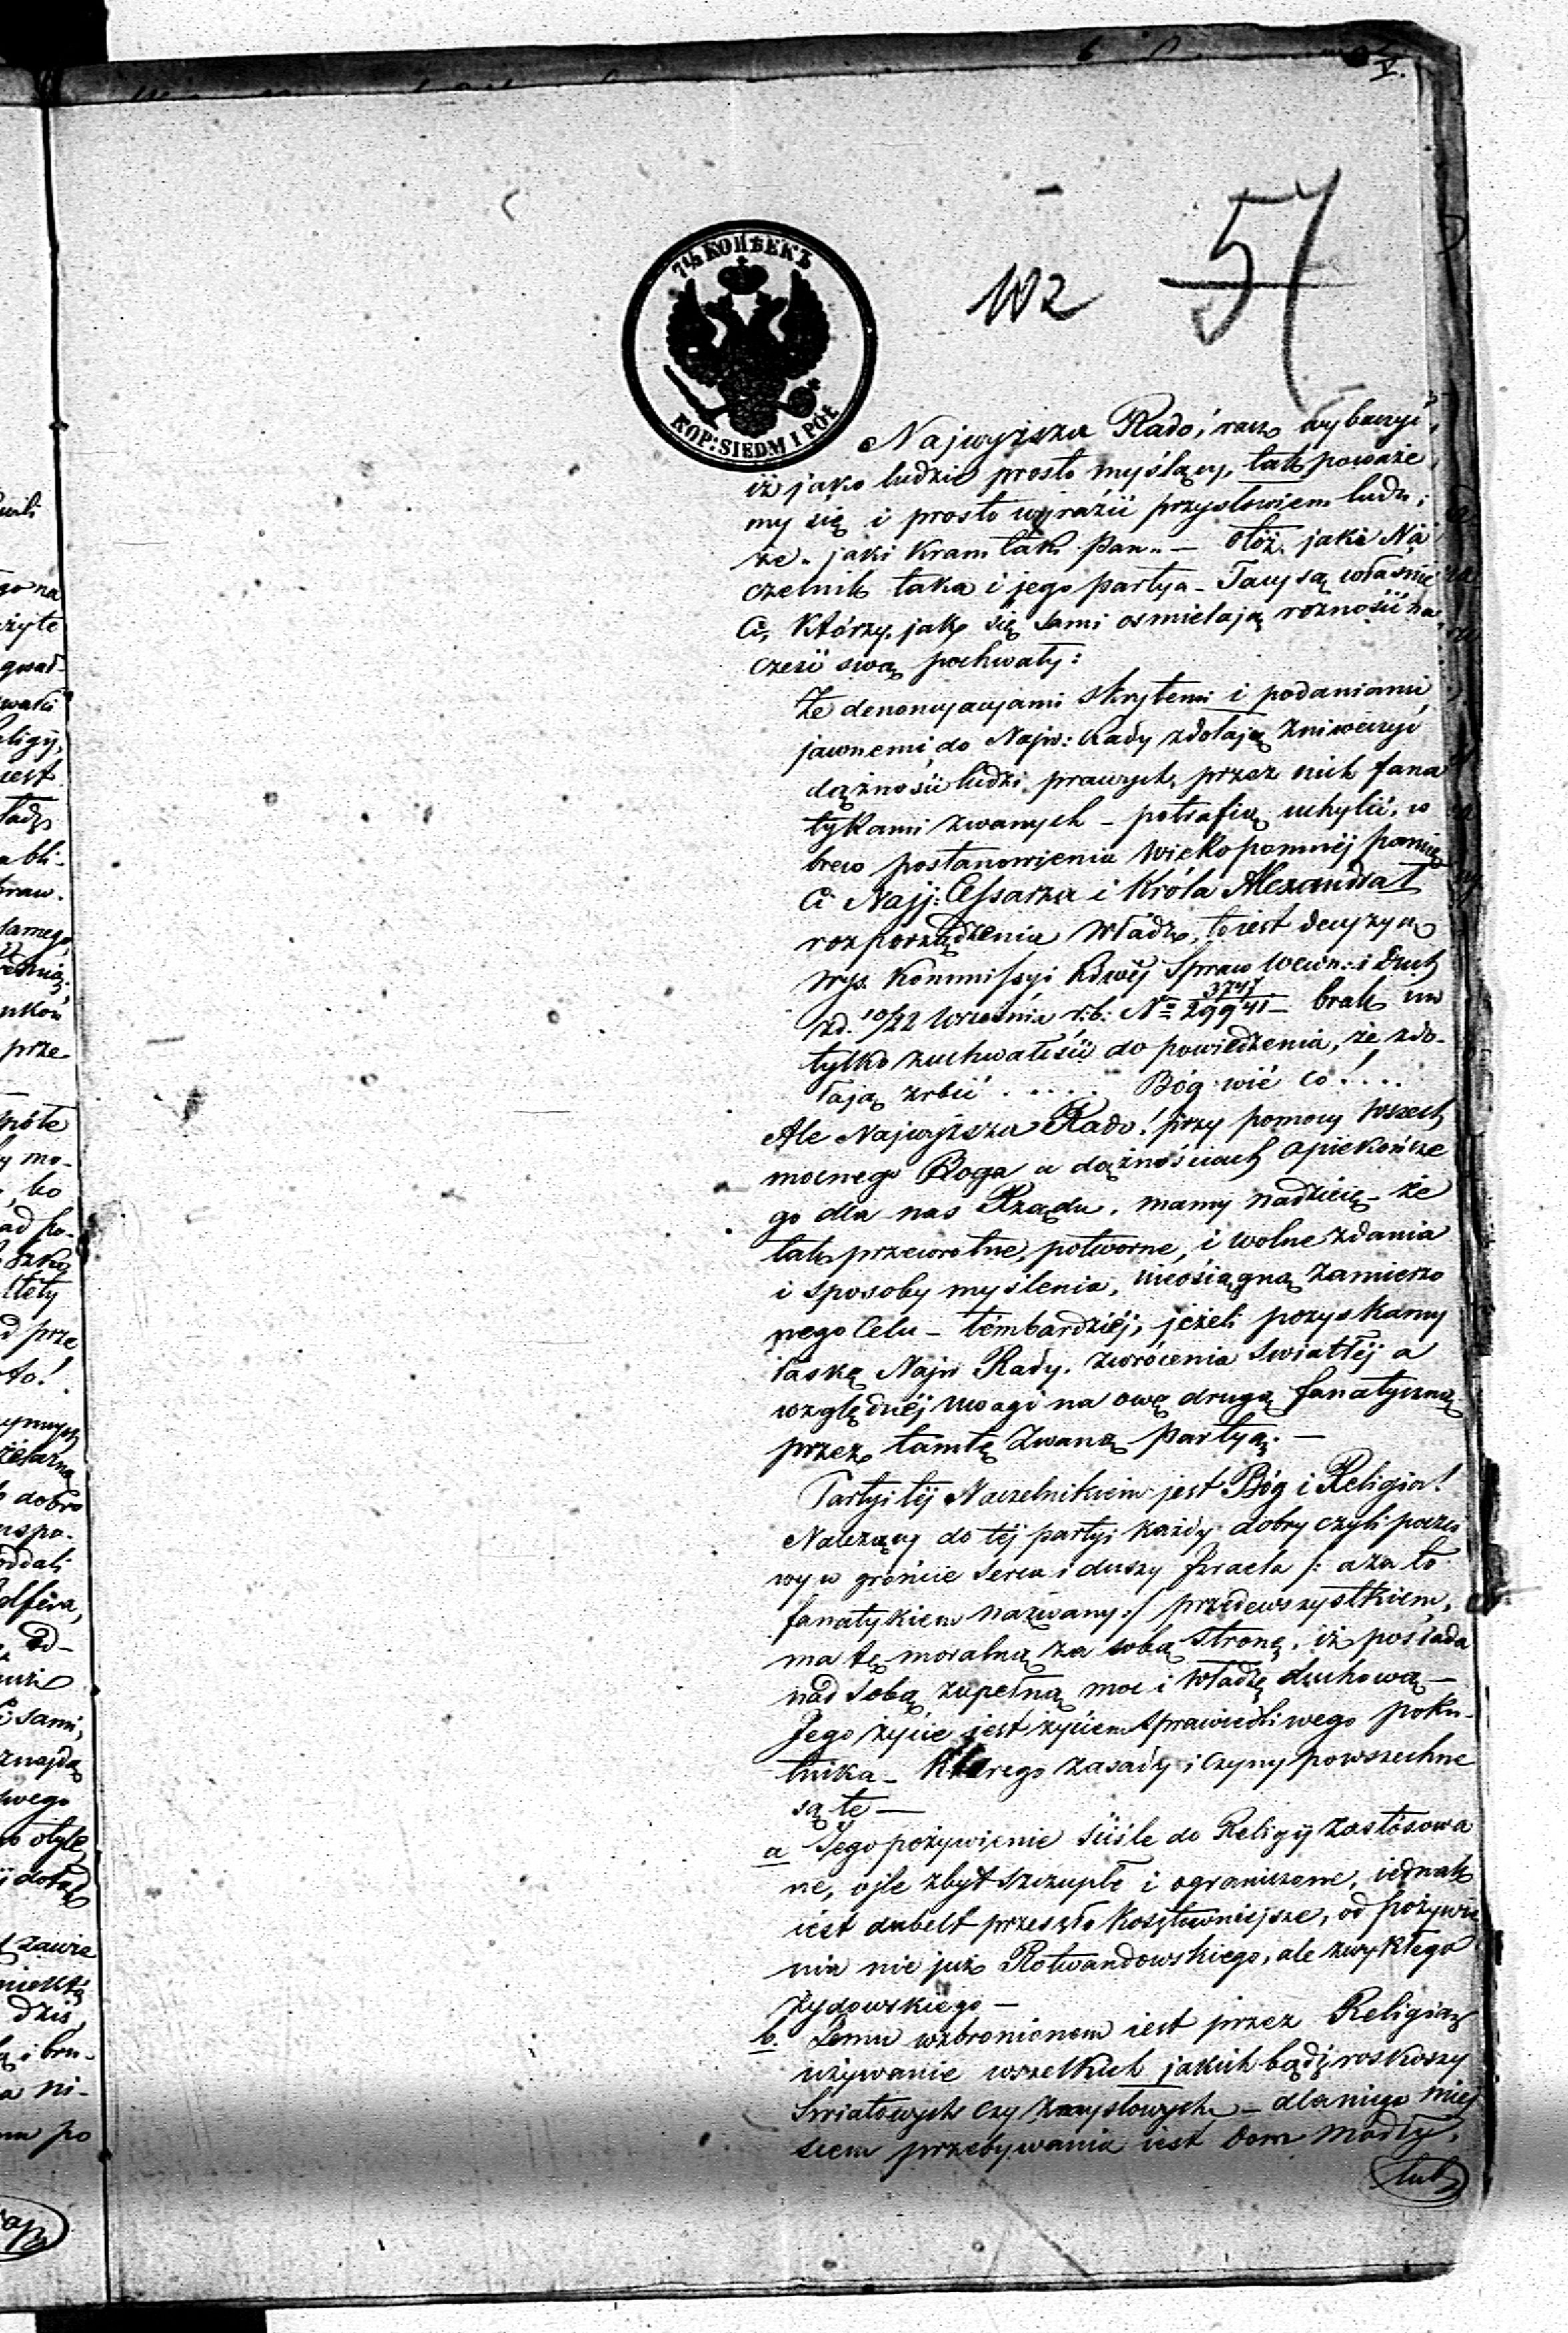 7½ КОПѢЕКЪ
KOP: SIEDM I PÓŁ
102
57
Najwyższa Rado, racz wybaczyć,
iż jako ludzie prosto myślący, tak poważe
my się i prosto wyrazić przysłowiem ludu:
że „jaki Kram taki Pan" — otóż jaki Na
czelnik taka i jego partya — Tacy są właśnie
Ci, Którzy jak się sami osmielają roznosić na
cześć swą pochwały:
Że denoncyacyami skrytemi i podaniami
jawnemi do Najw: Rady zdołają zniweczyć
dążności ludzi prawych, przez nich fana
tykami zwanych — potrafią uchylić, w
brew postanowienia wiekopomnéj pamię
Ci Najj: Cessarza i Króla Alexandra I
rozporządzenia Władz, to iest decyzyą
Wys. Kommissyi Rdwéj Spraw Wewn: i Duch
zd. 10/22 Września r:b: No 3747/29941 — brak im
tylko zuchwałości do powiedzenia, że zdo-
łają zrobić . . . . . Bóg wié co! . . .
Ale Najwyższa Rado! przy pomocy Wszech
mocnego Boga a dążnościach opiekuńcze
go dla nas Rządu, mamy nadzieię — że
tak przewrotne, potworne, i wolne zdania
i sposoby myślenia, nieosiągną zamierzo
nego Celu — témbardziéj, jeżeli pozyskamy
łaskę Najw Rady, zwrócenia swiatłéj a
względnéj uwagi na ową drugą fanatyczną
przez tamtę zwaną partyą. —
Partyi téj Naczelnikiem jest Bóg i Religia!
Należący do téj partyi każdy dobry czyli poczci
wy w gróncie serca i duszy Izraela /: a za to
fanatykiem nazwany :/ przedewszystkiem,
ma tę moralną za sobą stronę, iż posiada
nad sobą zupełną moc i władzę duchową —
Jego życie jest życiem sprawiedliwego poku-
tnika — Którego zasady i czyny powszechne
są te —
a Jego pożywienie ściśle do Religii zastósowa
ne, ojle zbyt szczupłe i ograniczone, iednak
iest dubelt przeszło kosztowniejsze, od pożywie
nia nie już Rotwandowskiego, ale zwykłego
żydowskiego —
b. Jemu wzbronionem iest przez Religią
używanie wszelkich jakich bądź roskoszy
światowych czy zmysłowych — dla niego miej
scem przebywania iest Dom Modły,
lub